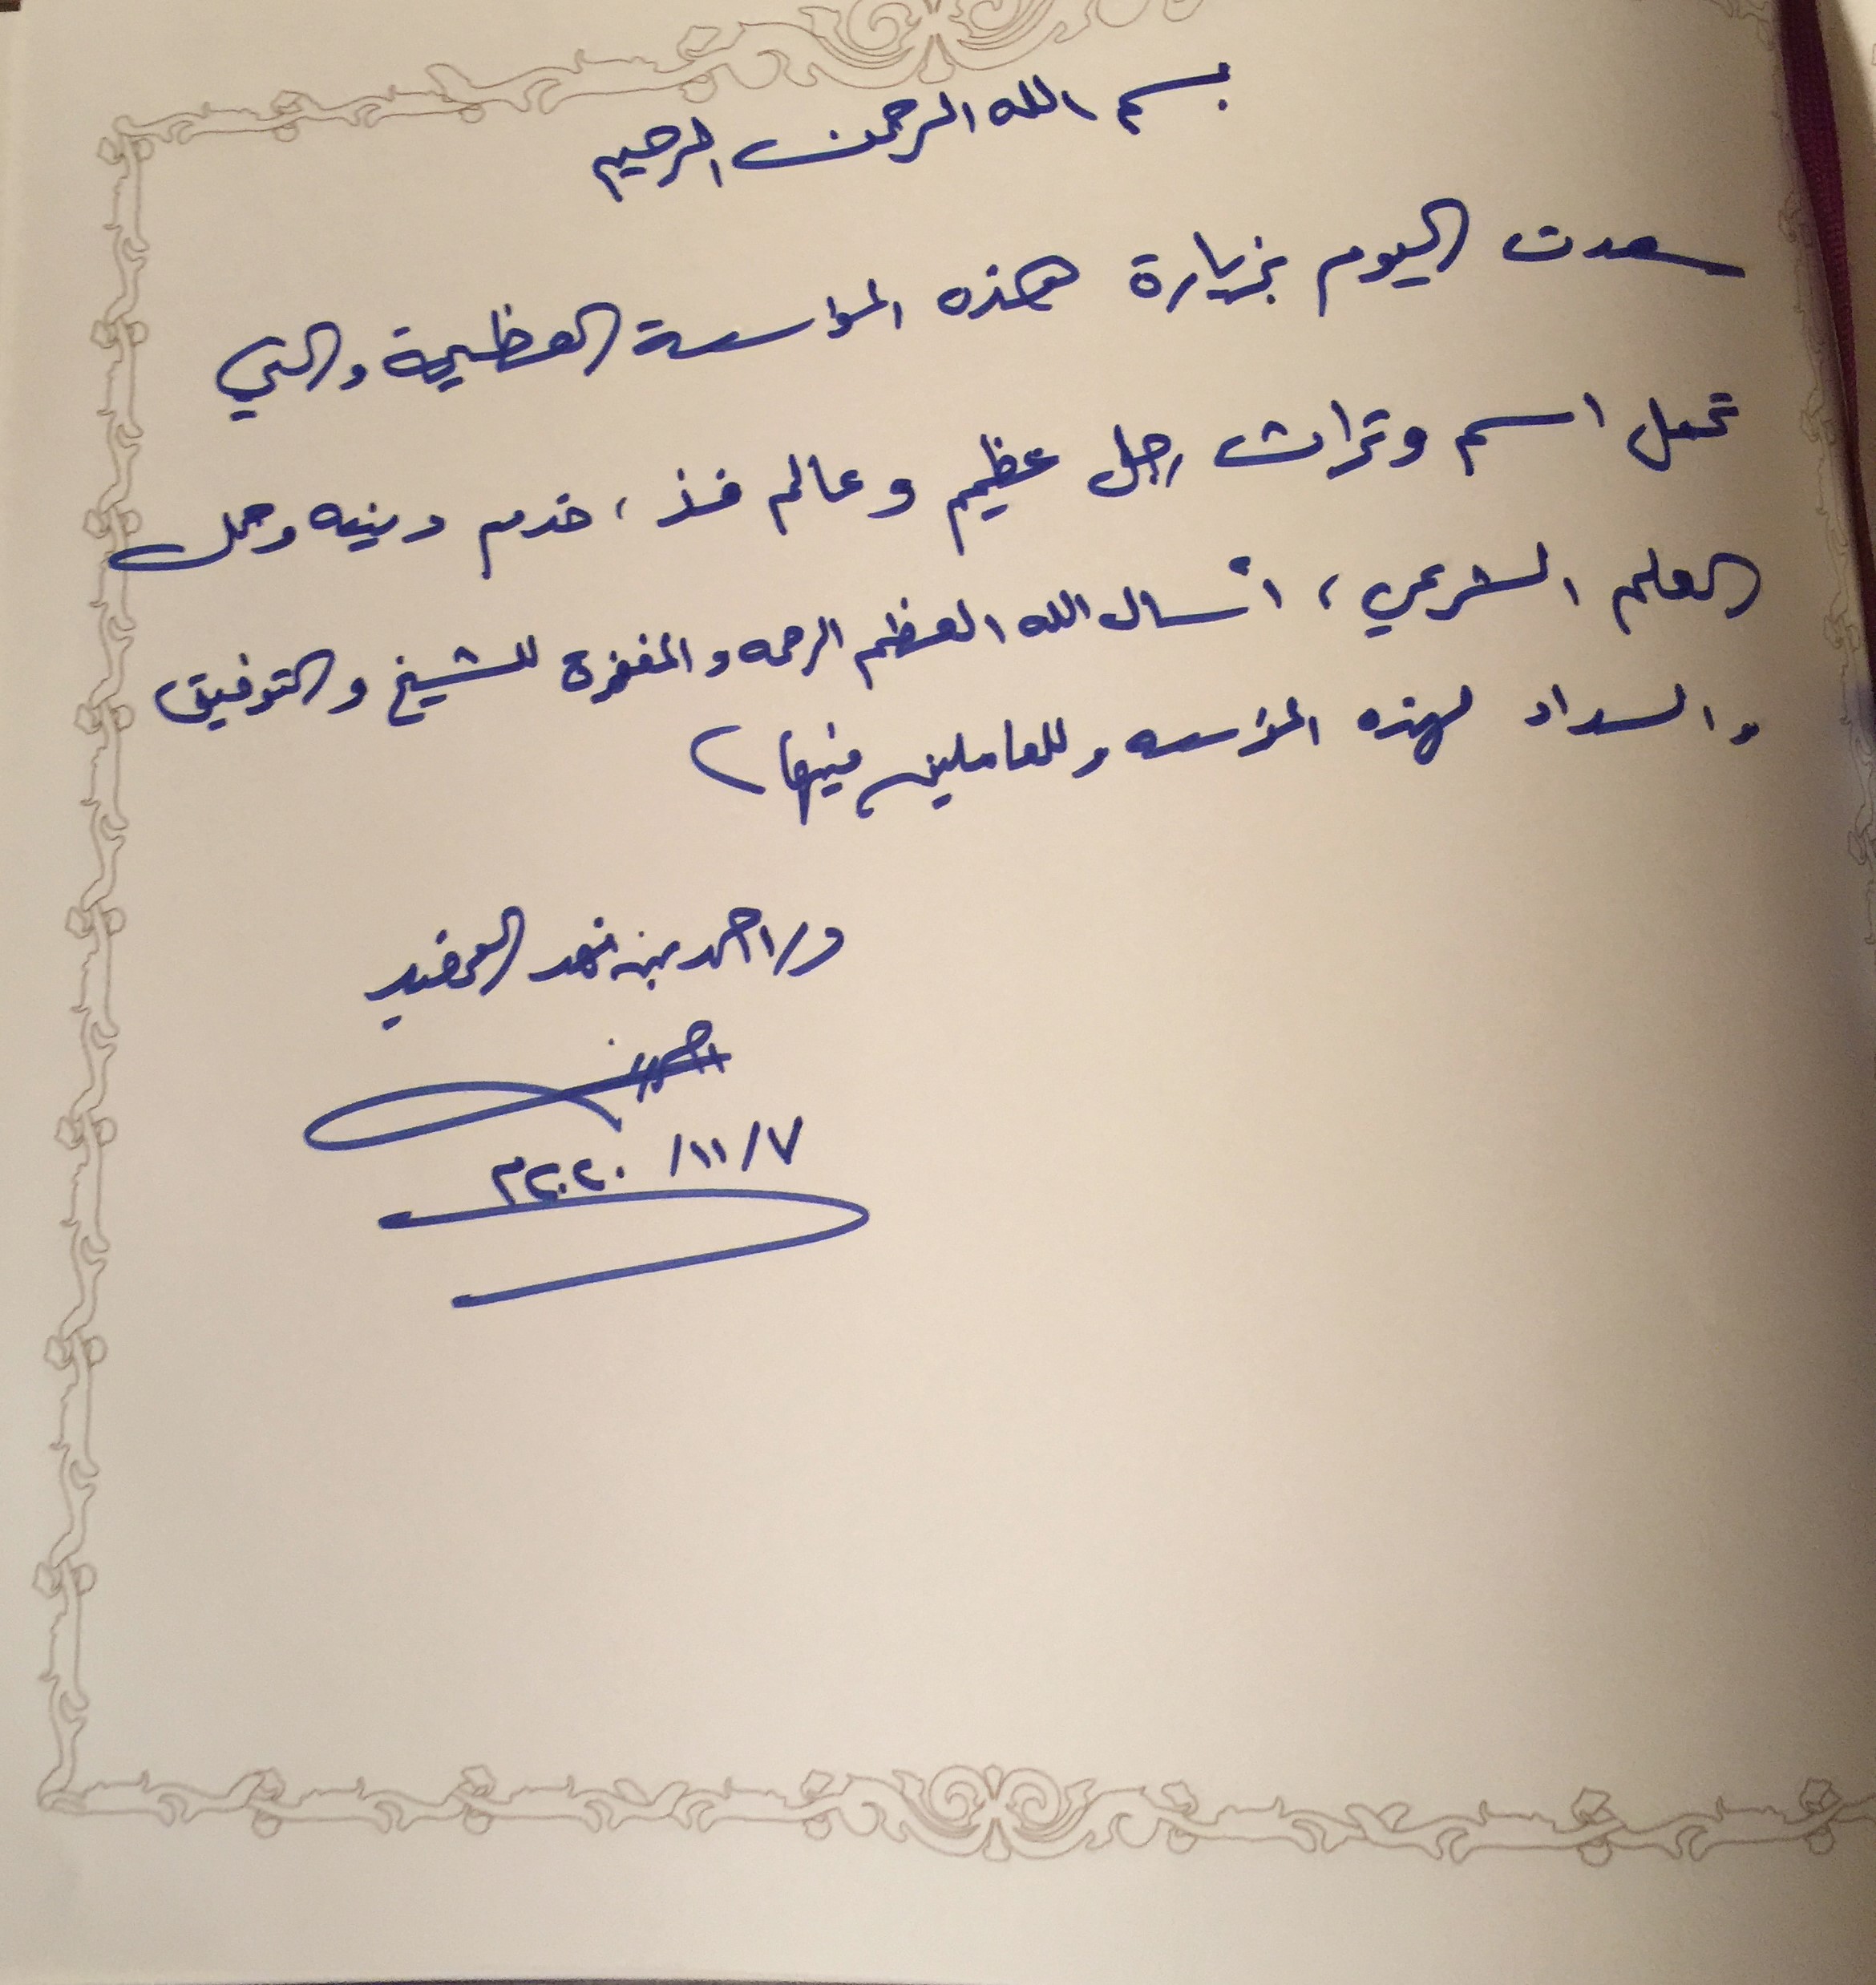 بسم الله الرحمن الرحيم
سعدت اليوم بزيارة هذه المؤسسة العظيمة والتي
تحمل اسم وتراث رجل عظيم وعالم فذ، خدم دينه وحمل
العلم الشرعي، أسال الله العظيم الرحمه والمغفرة للشيخ والتوفيق
والسداد لهذه المؤسسه وللعاملين فيها
د/ احمد بن فهد الفهيد
٧/١١/٢٠٢٠م